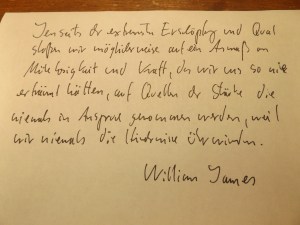 Jenseits der extremsten Erschöpfung und Qual
stoßen wir möglicherweise auf ein Ausmaß an
Mühelosigkeit und Kraft, das wir uns so nie
erträumt hätten, auf Quellen der Stärke die
niemals in Anspruch genommen werden, weil
wir niemals die Hindernisse überwinden.
William James